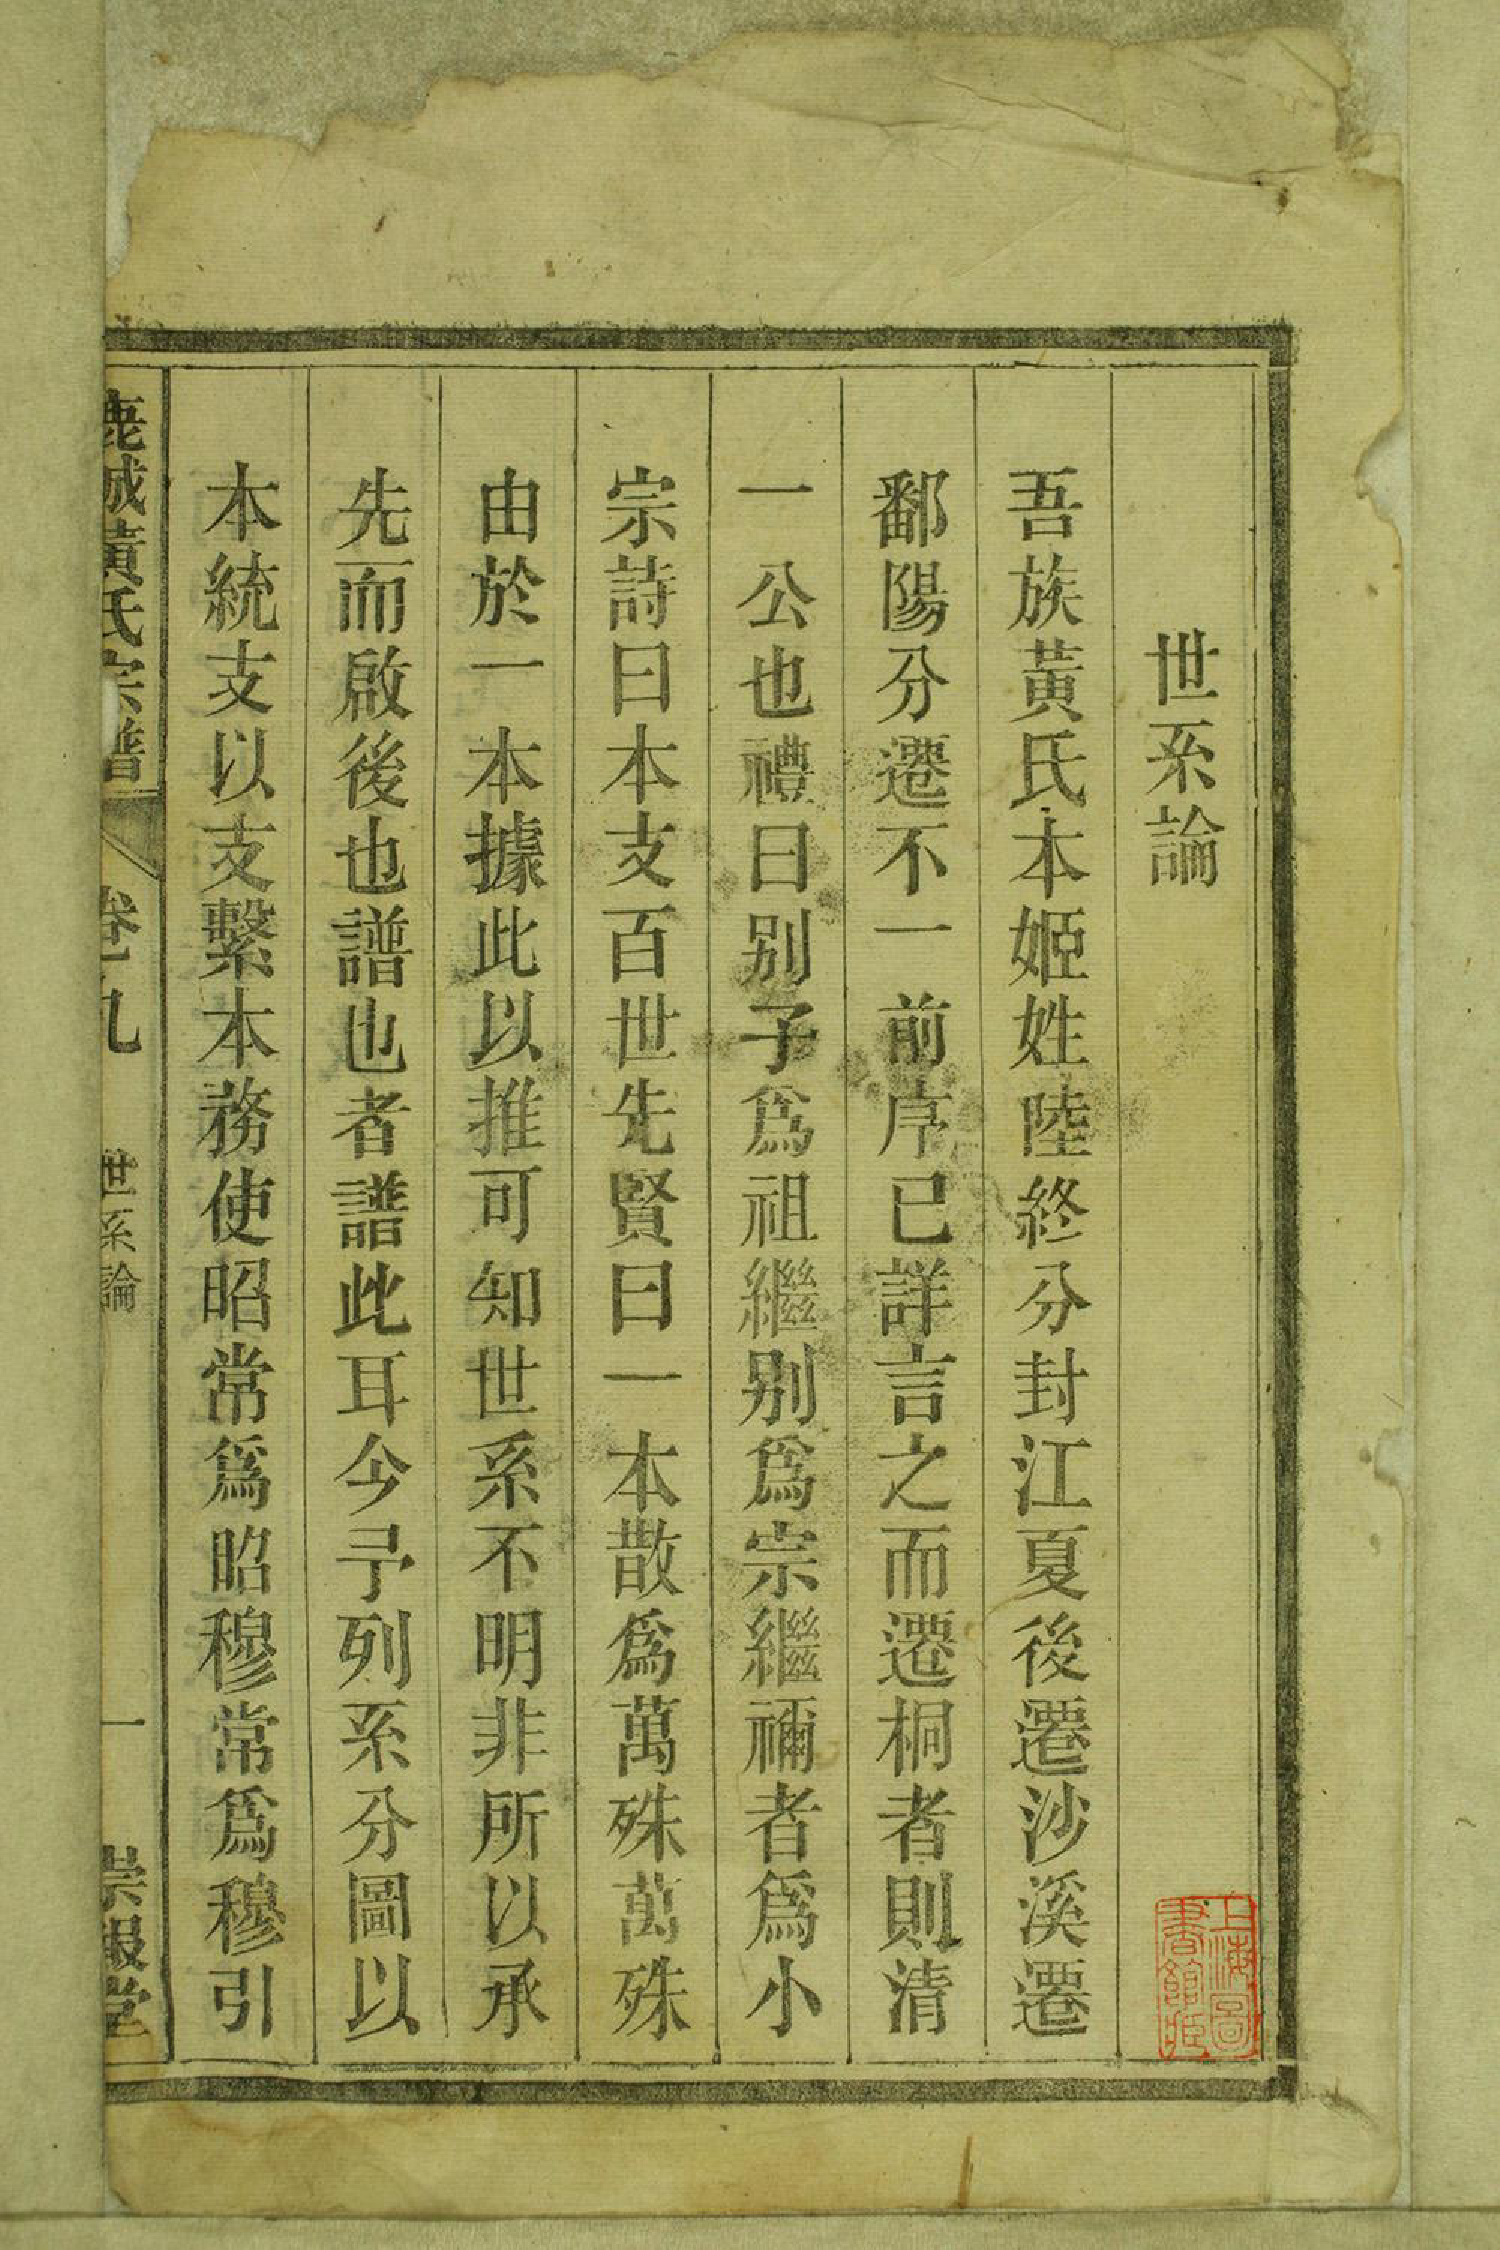 世系論
吾族黃氏本姬姓陸終分封江夏後遷沙溪遷
鄱陽分遷不一前序已詳言之而遷桐者則清
一公也禮曰别子爲祖繼别爲宗繼禰者爲小
宗詩曰本支百世先賢曰一本散爲萬殊萬殊
由於一本據此以推可知世系不明非所以承
先而啟後也譜也者譜此耳今予列系分圖以
本統支以支繫本務使昭常爲昭穆常爲穆引
鹿城黃氏宗譜 卷九 世系論 一 崇報堂
上海圖書館藏